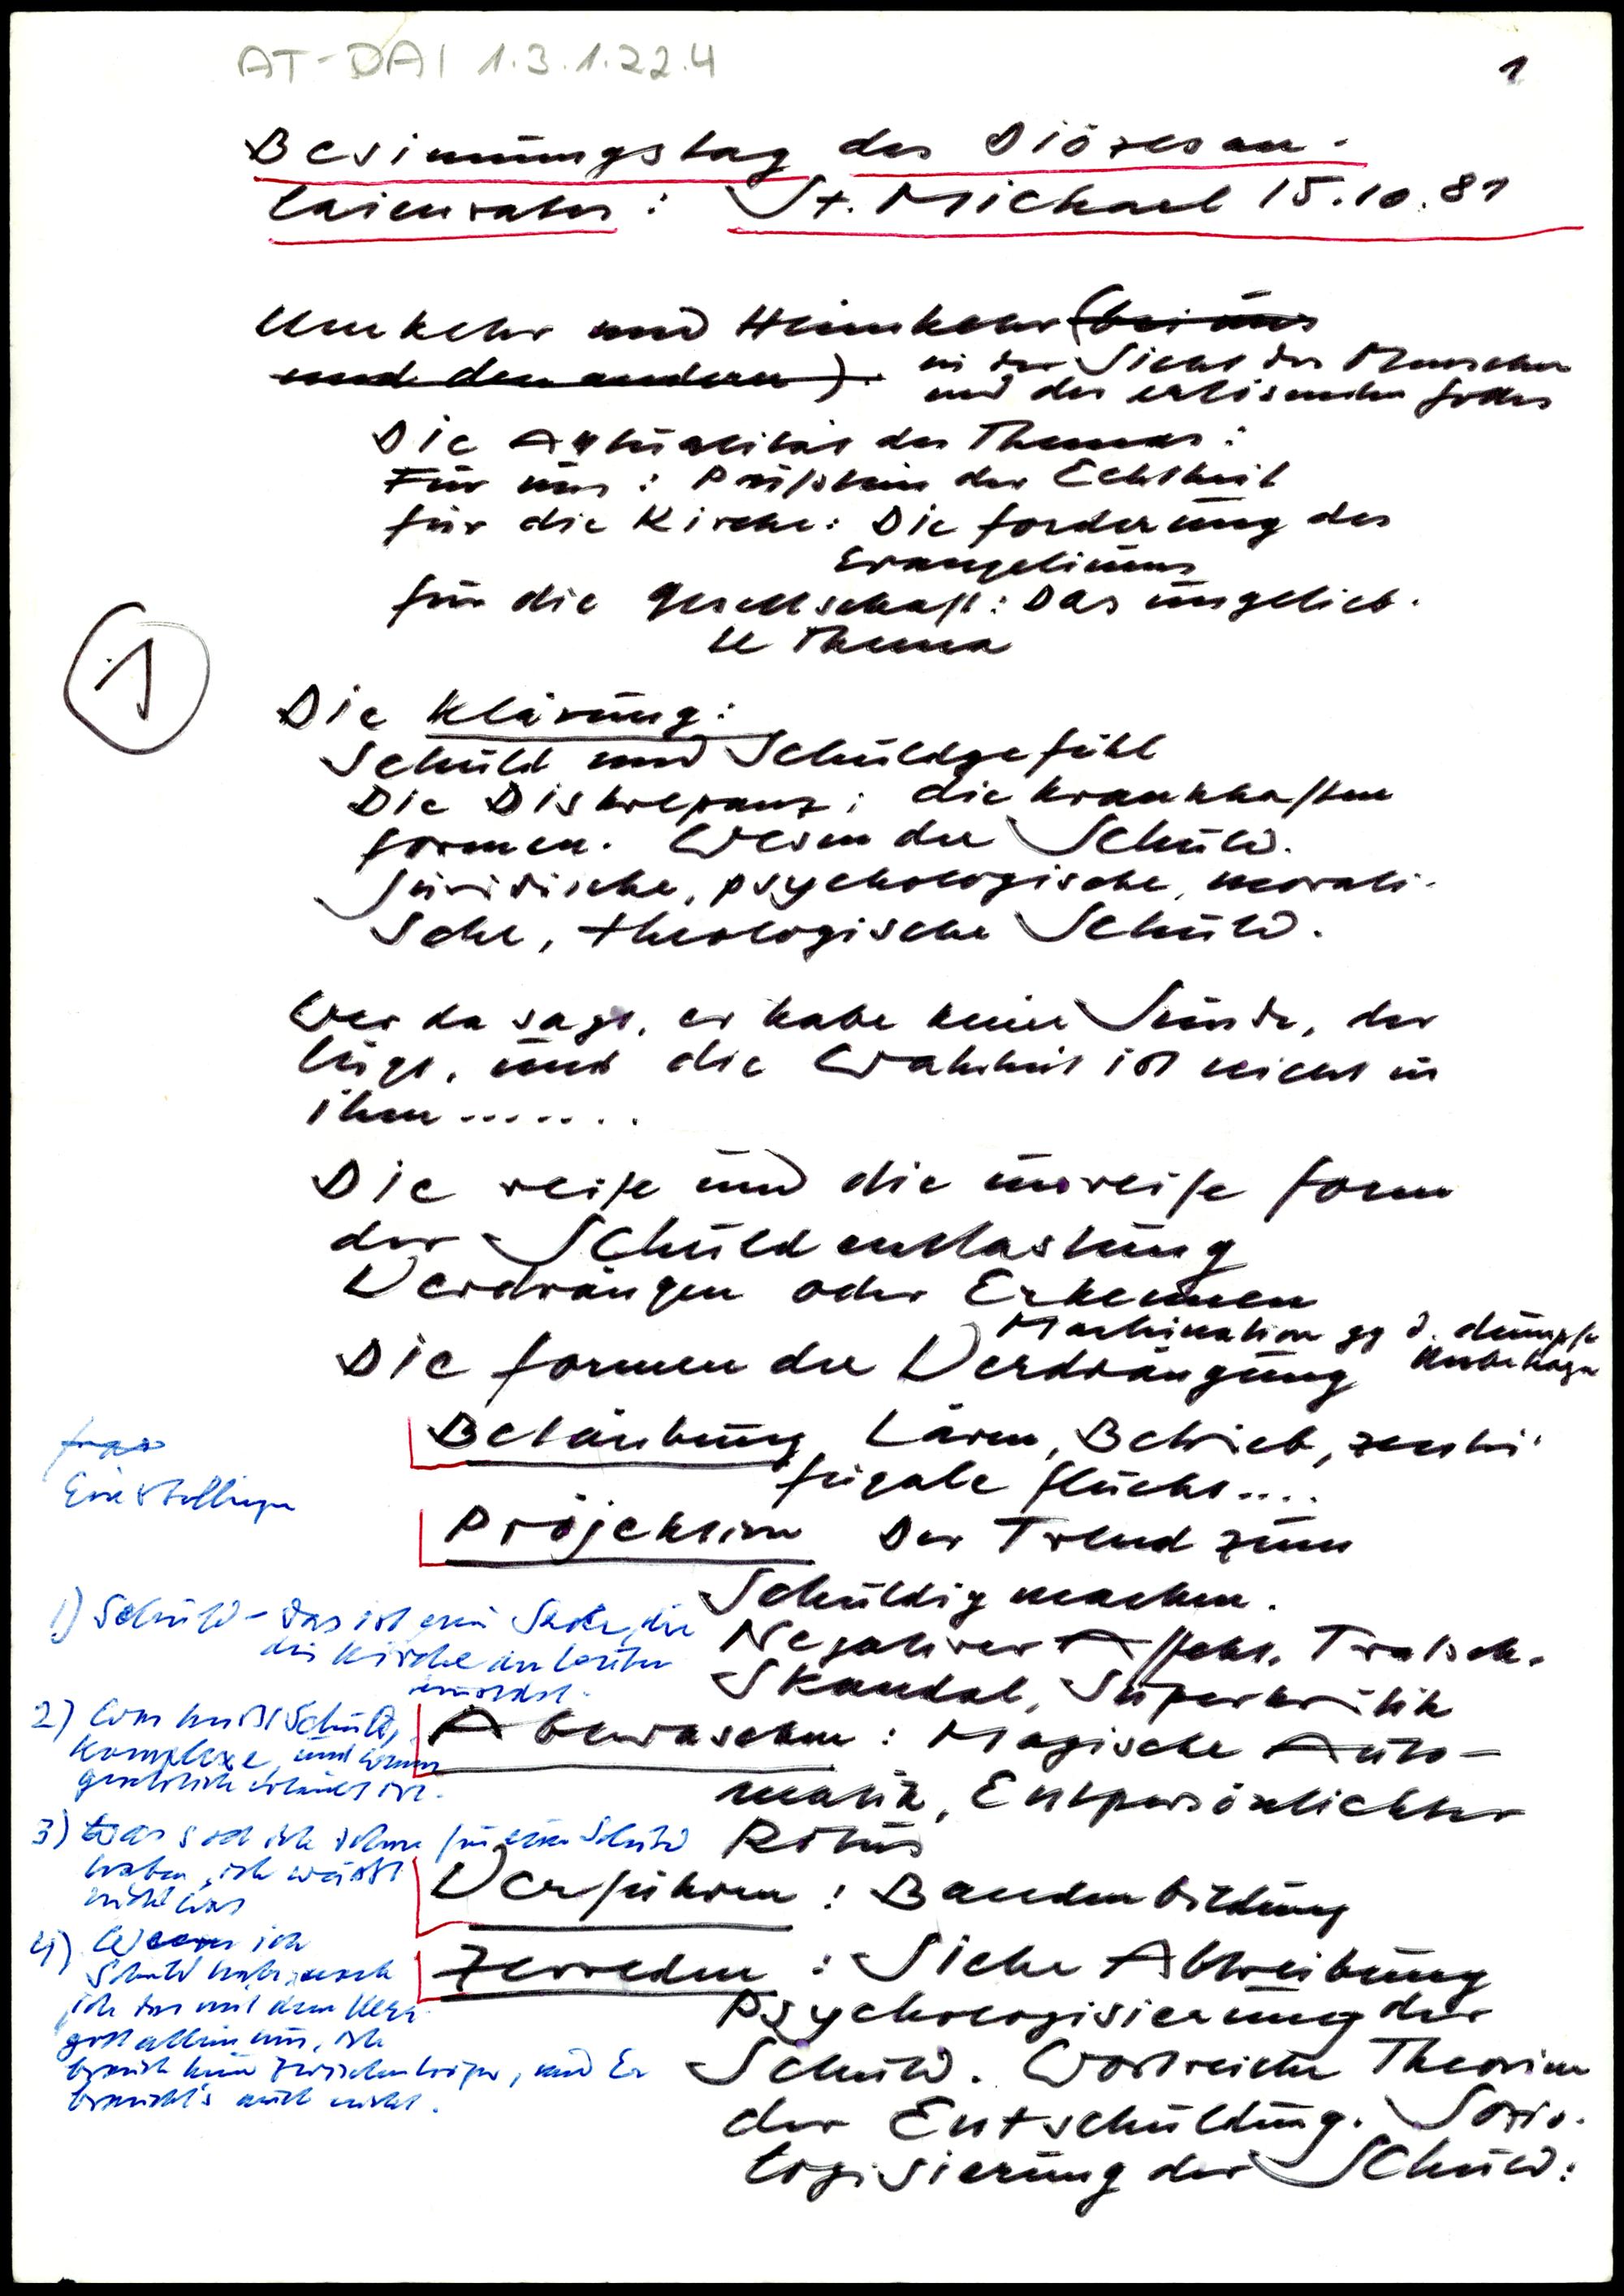 AT-DAI 1.3.1.22.4
1
Besinnungstag des Diözesan-
laienrates: St. Michael 15.10.81
Umkehr und Heimkehr (bei uns
und den andern). in der Sicht des Menschen
und des erlösenden Gottes
Die Aktualität des Themas:
Für uns: Prüfstein der Echtheit
für die Kirche: Die Forderung des
Evangeliums
für die Gesellschaft: Das ungelieb-
te Thema
1
Die Klärung:
Schuld und Schuldgefühl
Die Diskrepanz: die krankhaften
Formen. Wesen der Schuld.
Juridische, psychologische, morali-
sche, theologische Schuld.
Wer da sagt, er habe keine Sünde, der
lügt, und die Wahrheit ist nicht in
ihm.......
Die reife und die unreife Form
der Schuldentlastung
Verdrängen oder Erkennen
Machination gg d. dumpfe
Unbehagen
Die Formen der Verdrängung
Betäubung, Lärm, Betrieb, zentri-
fugale Flucht....
Einstellungen
Projektion Der Trend zum
Schuldigmachen.
1) Schuld - das ist eine Sache, die
die Kirche den Leuten
einredet.
Negativer Affekt, Tratsch,
Skandal, Superkritik
2) Schuld,
Komplexe, und wenn
Abwaschen: Magische Auto-
matik, Entpersönlichter
Ritus
3) Was soll ich schon für eine Schuld
haben, ich wüsst
nicht was
Verführen: Bandenbildung
4) Wenn ich
Schuld habe, mach
ich das mit dem Herr-
gott allein aus, ich
brauch kein Zwischenträger, und Er
braucht's auch nicht.
Zerreden: Siehe Abtreibung
Psychologisierung der
Schuld. Wortreiche Theorien
der Entschuldung. Sozio-
logisierung der Schuld: